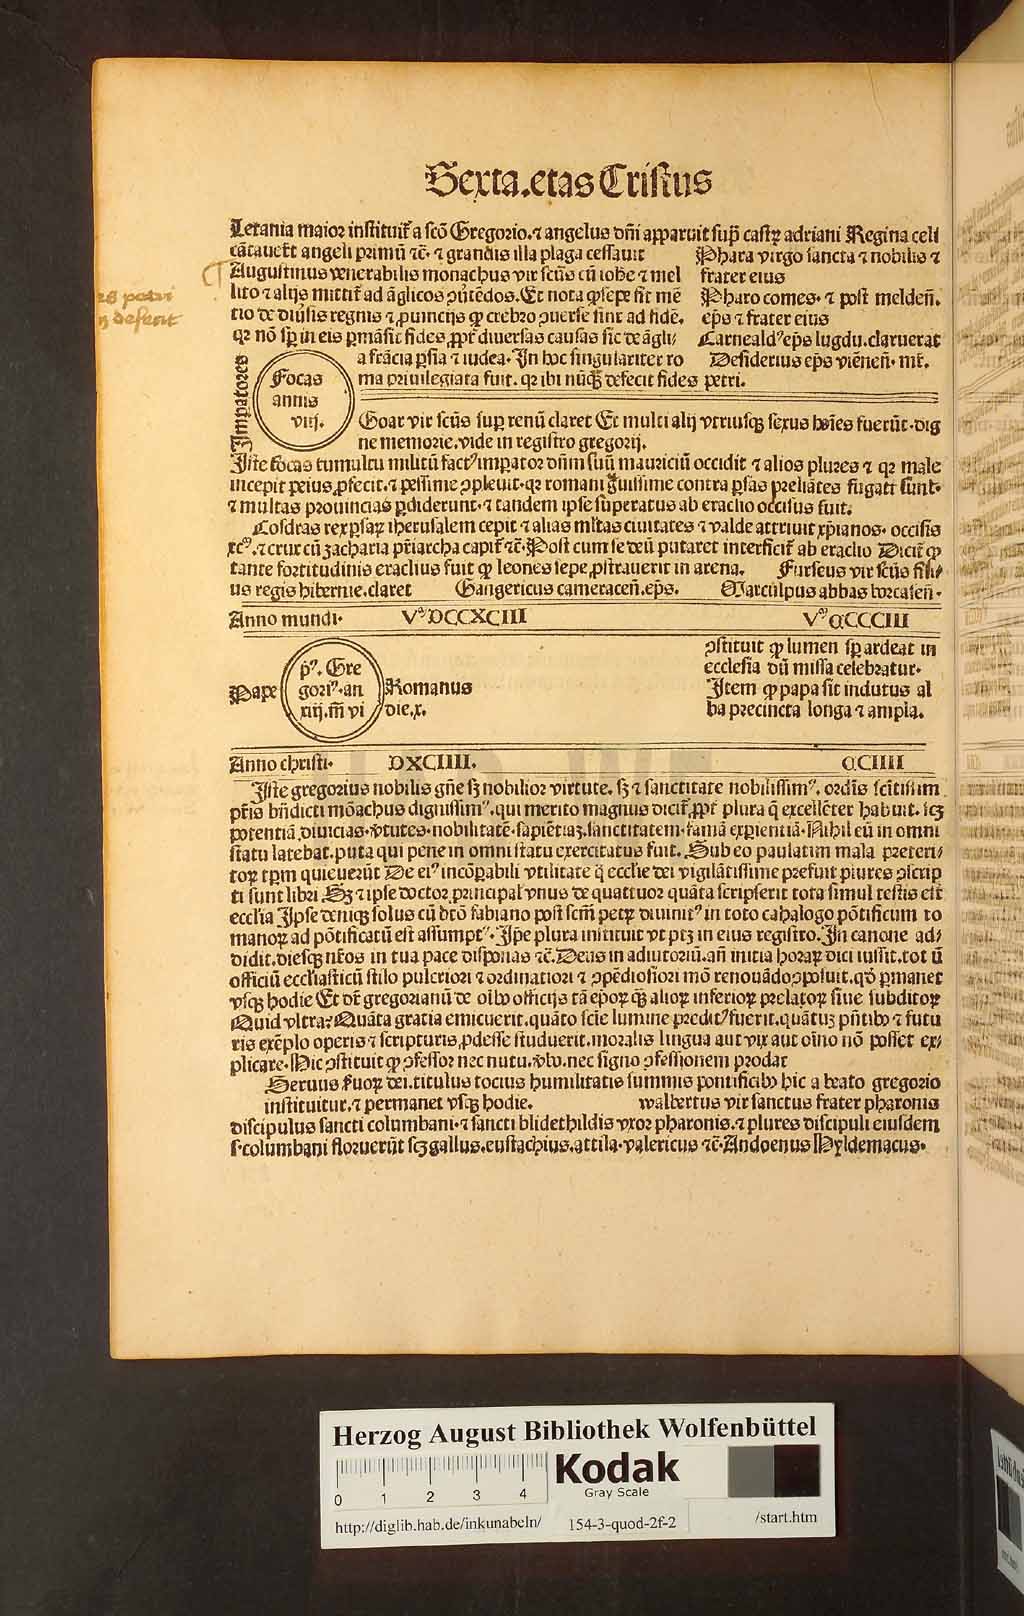 Sexta.etas Cristus
Letania maior instituit᷑ a scō Gregorio.⁊ angelus dn̄i apparuit sup̄ castꝝ adriani Regina celi
cātauer̄t angeli primū ⁊c̄. ⁊ grandis illa plaga cessauit
Augustinus venerabilis monachus vir scūs cū iohe ⁊ mel
lito ⁊ alijs mittit᷑ ad āglicos ꝯūtēdos. Et nota ꝙ sepe fit mē
tio de diūsis regnis ⁊ ꝓuincijs ꝙ crebro ꝯuerse sint ad fidē.
qꝛ nō sꝑ in eis ꝑmāsit fides ꝓpt᷑ diuersas causas sic de āgli/
a frācia ꝑsia ⁊ iudea. In hoc singulariter ro
ma priuilegiata fuit. qꝛ ibi nūqꝫ defecit fides petri.
Phara virgo sancta ⁊ nobilis ⁊
frater eius
Pharo comes. ⁊ post melden̄.
ep̄s ⁊ frater eius
Carneald᷒ ep̄s lugdu. claruerāt
Desiderius ep̄s viēnen̄. mr̄.
rs petri
defecit
Imperatores
Focas
annis
viij.
Goar vir scūs sup renū claret Et multi alij vtriusqꝫ sexus hoīes fuerūt.dig
ne memorie.vide in registro gregorij.
Iste focas tumultu militū fact᷒ imꝑator dn̄m suū mauriciū occidit ⁊ alios plures ⁊ qꝛ male
incepit peius ꝓfecit.⁊ pessime ꝯpleuit.qꝛ romani ḡuissime contra ꝑsas preliātes fugati sunt.
⁊ multas prouincias ꝑdiderunt.⁊ tandem ipse superatus ab eraclio occisus fuit.
Cosdras rex ꝑsaꝝ iherusalem cepit ⁊ alias ml̄tas ciuitates ⁊ valde attriuit xp̄ianos. occisis
xcᵐ.⁊ crux cū zacharia pr̄iarcha capit᷑ ⁊c̄. Post cum se deū putaret interficit᷑ ab eraclio Dicit᷑ ꝙ
tante fortitudinis eraclius fuit ꝙ leones sepe ꝓstrauerit in arena. Furseus vir scūs fili/
us regis hibernie.claret Gangericus cameracen̄.ep̄s. Marculpus abbas
Anno mundi. Vᵐ DCCXCIII Vᵐ DCCCIII
Pape
p᷒. Gre
gori᷒.an
xiij.m̄ vi
Romanus
die.x.
ꝯstituit ꝙ lumen sꝑ ardeat in
ecclesia dū missa celebratur.
Item ꝙ papa sit indutus al
ba precincta longa ⁊ ampla.
Anno christi. DXCIIII. DCIIII
Iste gregorius nobilis gn̄e sꝫ nobilior virtute. sꝫ ⁊ sanctitate nobilissim᷒. ordīs scītissim
pr̄is bn̄dicti mōachus dignissim᷒.qui merito magnus dicit᷑ ꝓpt᷑ plura q̄ excellēter habuit. scꝫ
potentiā.diuicias.v̄tutes.nobilitatē.sapiētiaꝫ.sanctitatem.famā experientiā.Nihil eū in omni
statu latebat.puta qui pene in omni statu exercitatus fuit. Sub eo paulatim mala preteri/
toꝝ tꝑm quieuerūt De ei᷒ incōꝑabili vtilitate q̄ ecclie dei vigilātissime prefuit plures ꝯscrip
ti sunt libri Sꝫ ⁊ ipse doctor principal᷒ vnus de quattuor quāta scripserit tota simul testis est
ecclia Ipse deniqꝫ solus cū bt̄o fabiano post scm̄ petꝝ diuinit᷒ in toto cathalogo pōtificum ro
manoꝝ ad pōtificatū est assumpt᷒. Ipē plura instituit vt ptꝫ in eius registro. In canone ad/
didit.diesqꝫ nr̄os in tua pace disponas ⁊c̄. Deus in adiutoriū.an̄ initia horaꝝ dici iussit.tot ū
officiū eccl̄iasticū stilo pulcriori ⁊ ordinatiori ⁊ ꝯpēdiosiori mō renouādo ꝯposuit.qd̕ ꝑmanet
vsqꝫ hodie Et dr̄ gregorianū de oībꝫ officijs tā ep̄oꝝ qꝫ alioꝝ inferioꝝ prelatoꝝ siue subditoꝝ
Quid vltra? Quāta gratia emicuerit.quāto scīe lumine predit᷒ fuerit.quātuꝫ pn̄tibꝫ ⁊ futu
ris exēplo operis ⁊ scripturis ꝓdesse studuerit.moralis lingua aut vix aut oīno nō posset ex/
plicare. Hic ꝯstituit ꝙ ꝯfessor nec nutu.v̄bo.nec signo ꝯfessionem prodat
Seruus seruoꝝ dei.titulus tocius humilitatis summis pontificibꝫ hic a beato gregorio
instituitur.⁊ permanet vsqꝫ hodie. walbertus vir sanctus frater pharonis
discipulus sancti columbani.⁊ sancti blidethildis vxor pharonis.⁊ plures discipuli eiusdem
s.columbani floruerūt scꝫ gallus.eustachius.attila.valericus ⁊c̄. Andoenus Hyldemacus.
Herzog August Bibliothek Wolfenbüttel
0 1 2 3 4
Kodak
Gray Scale
http://diglib.hab.de/inkunabeln/ 154-3-quod-2f-2 /start.htm